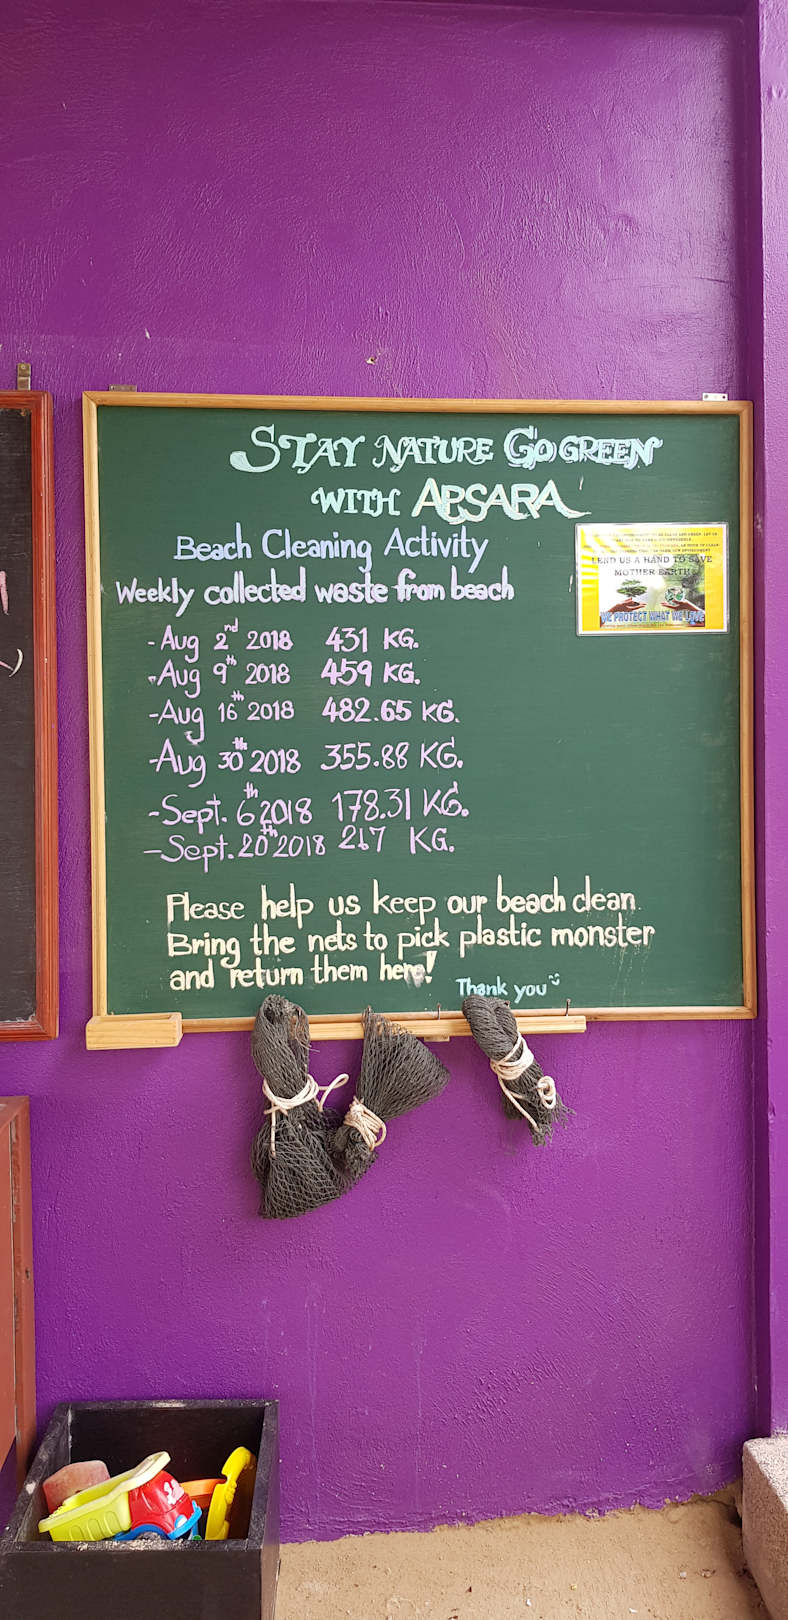 STAY NATURE GO GREEN
WITH APSARA
Beach Cleaning Activity
Weekly collected waste from beach
- Aug 2nd 2018 431 KG.
- Aug 9th 2018 459 KG.
- Aug 16th 2018 482.65 KG.
- Aug 30th 2018 355.88 KG.
- Sept. 6th 2018 178.31 KG.
- Sept. 20th 2018 217 KG.
Please help us keep our beach clean
Bring the nets to pick plastic monster
and return them here!
Thank you
LEND US A HAND TO SAVE
MOTHER EARTH
WE PROTECT WHAT WE LOVE